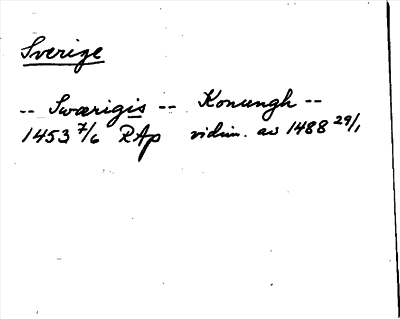 Sverige
-- Swærigis -- Konungh --
1453 7/6 RAp vidim. av 1488 29/1